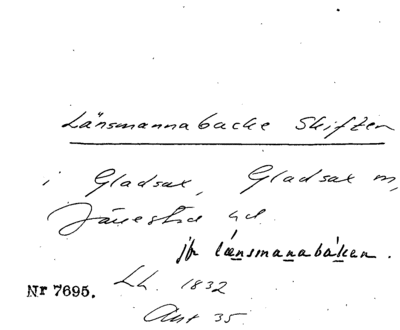 Länsmannabacke Skiften
i Gladsax, Gladsax m,
Järrestad hd.
jfr länsmanabaken.
Nr 7695.
Lh. 1832
Akt 35